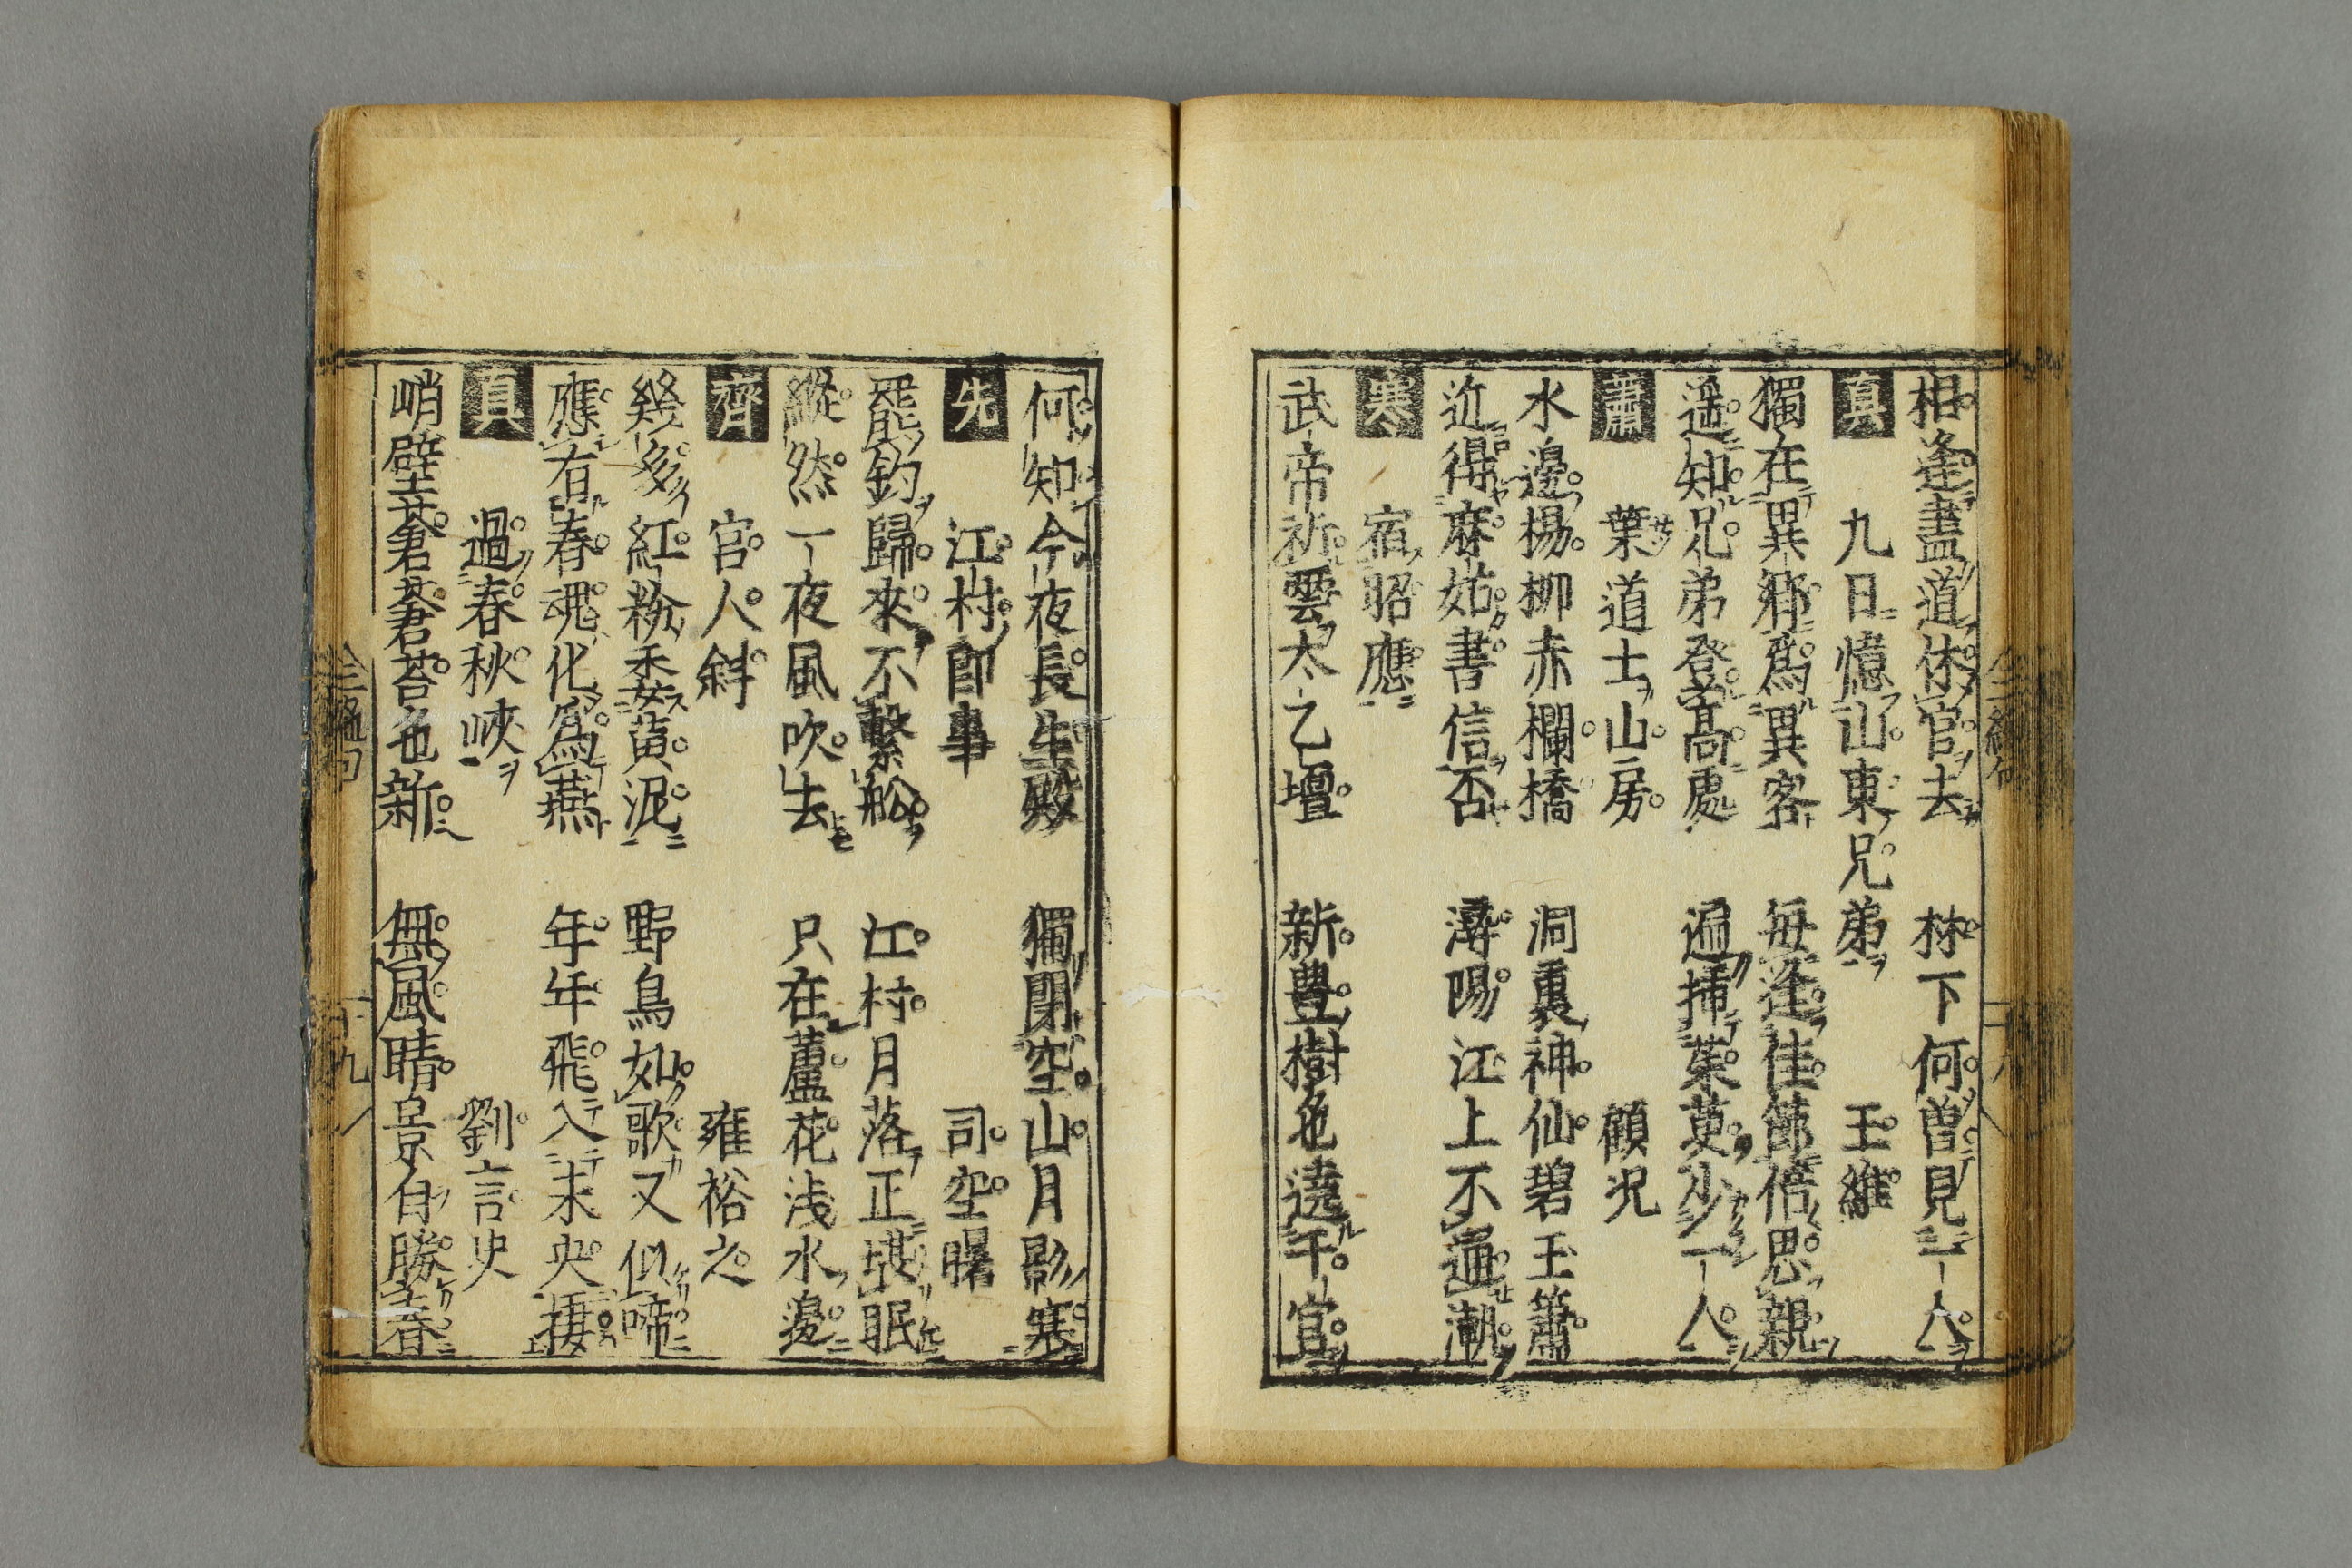 相逢盡道休官去 林下何曽見一人
真 九日憶山東兄弟 王維
獨在異郷為異客 毎逢佳節倍思親
遥知兄弟登髙處 遍插茱萸少一人
蕭 葉道士山房 顧况
水邊楊柳赤欄橋 洞裏神仙碧玉簫
近得麻姑書信否 潯陽江上不通潮
寒 宿昭應
武帝祈雲太乙壇 新豊樹色遶千官
何知今夜長生殿 獨閉空山月影寒
先 江村即事 司空曙
罷釣歸來不繫舩 江村月落正堪眠
縱然一夜風吹去 只在蘆花浅水邊
齊 官人斜 雍裕之
幾多紅粉委黄泥 野鳥如歌又似啼
應有春魂化為燕 年年飛入未央棲
真 過春秋峽 劉言史
峭壁蒼蒼苔色新 無風晴景自勝春
三絶句 十九